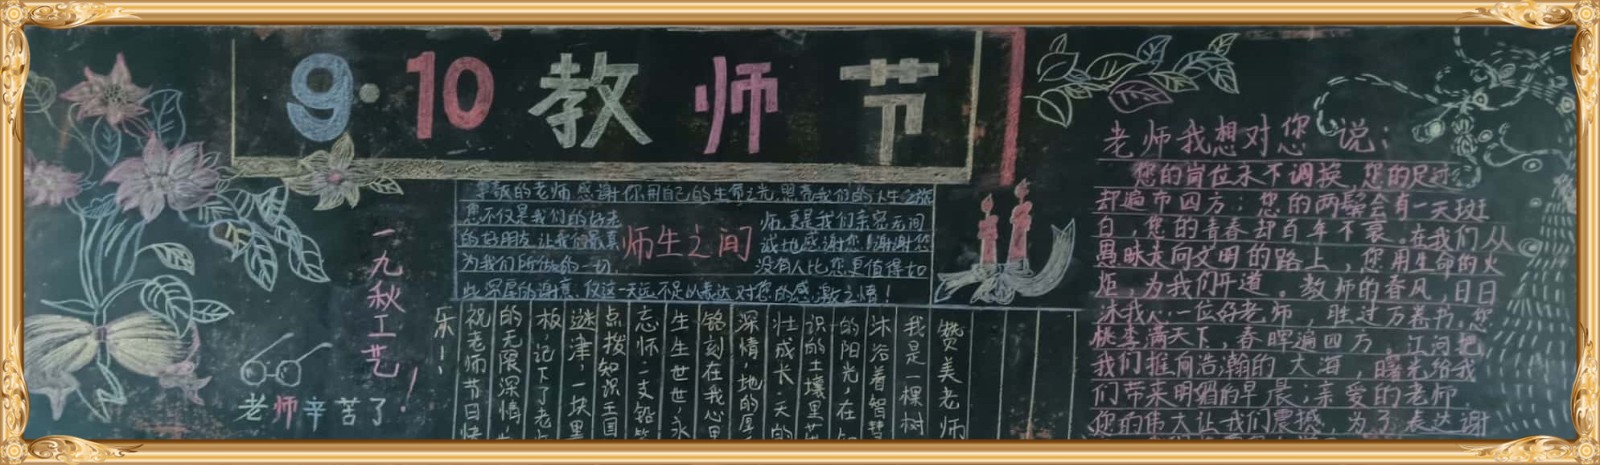 9·10 教师节
一九秋工艺!
老师辛苦了
的老师感谢你用自己的生命之光,照亮我们的人生之旅
您不仅是我们的好老师,更是我们亲密无间
的好朋友让我们最真诚地感谢您!谢谢您
师生之间
为我们所做的一切 没有人比您更值得如
此深厚的谢意.仅这一天远不足以表达对您的感激之情!
赞美老师
我是一棵树
沐浴着智慧
的阳光,在
识的土壤里茁
壮成长.天的
深情,地的厚
铭刻在我心里
生生世世,永
忘怀一支铅笔
点拨知识王国
谜津,一块里
板,记下了老师
的无限深情
祝老师节日快
乐!
老师我想对您说:
您的岗位永不调换,您的足迹
却遍市四方;您的两鬓会有一天斑
白,您的青春却百年不衰。在我们从
愚昧走向文明的路上,您用生命的火
炬,为我们开道。教师的春风,日日
沐我心.一位好老师 胜过万卷书.您
桃李满天下,春晖遍四方,江河把
我们推向浩瀚的大海,曙光给我
们带来明媚的早晨;亲爱的老师,
您的伟大让我们震撼,为了表达谢